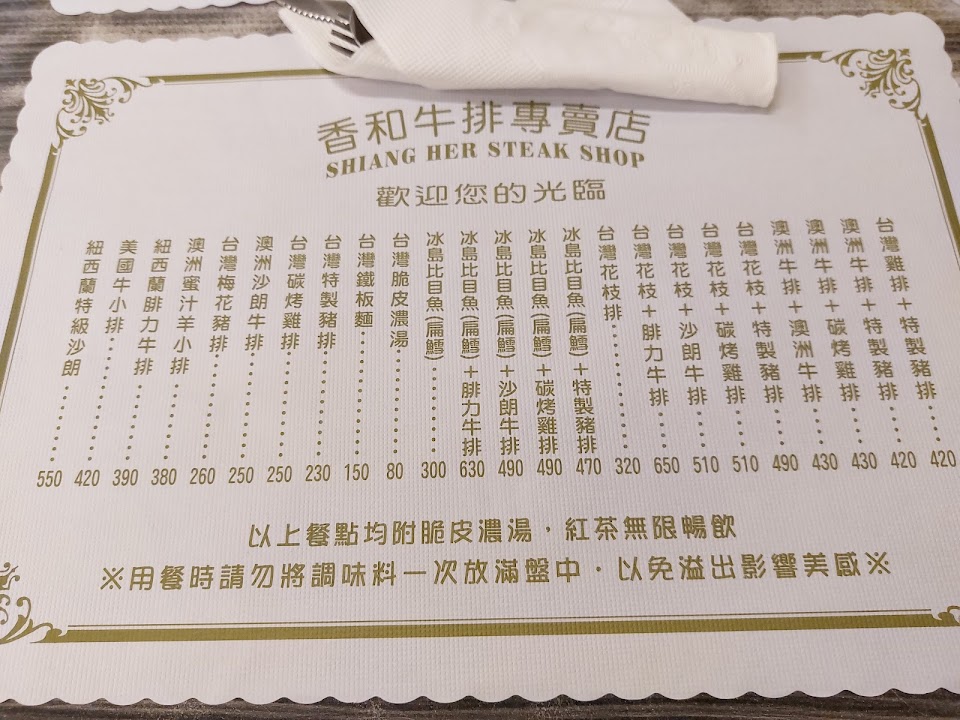 香和牛排專賣店
SHIANG HER STEAK SHOP
歡迎您的光臨
台灣雞排+特製豬排……420
澳洲牛排+特製豬排……420
澳洲牛排+碳烤雞排……430
澳洲牛排+澳洲牛排……430
台灣花枝+特製豬排……490
台灣花枝+碳烤雞排……510
台灣花枝+沙朗牛排……510
台灣花枝+腓力牛排……650
台灣花枝排……320
冰島比目魚(扁鱈)+特製豬排 470
冰島比目魚(扁鱈)+碳烤雞排 490
冰島比目魚(扁鱈)+沙朗牛排 490
冰島比目魚(扁鱈)+腓力牛排 630
冰島比目魚(扁鱈)……300
台灣脆皮濃湯……80
台灣鐵板麵……150
台灣特製豬排……230
台灣碳烤雞排……250
澳洲沙朗牛排……250
台灣梅花豬排……260
澳洲蜜汁羊小排……380
紐西蘭腓力牛排……390
美國牛小排……420
紐西蘭特級沙朗……550
以上餐點均附脆皮濃湯,紅茶無限暢飲
※用餐時請勿將調味料一次放滿盤中,以免溢出影響美感※